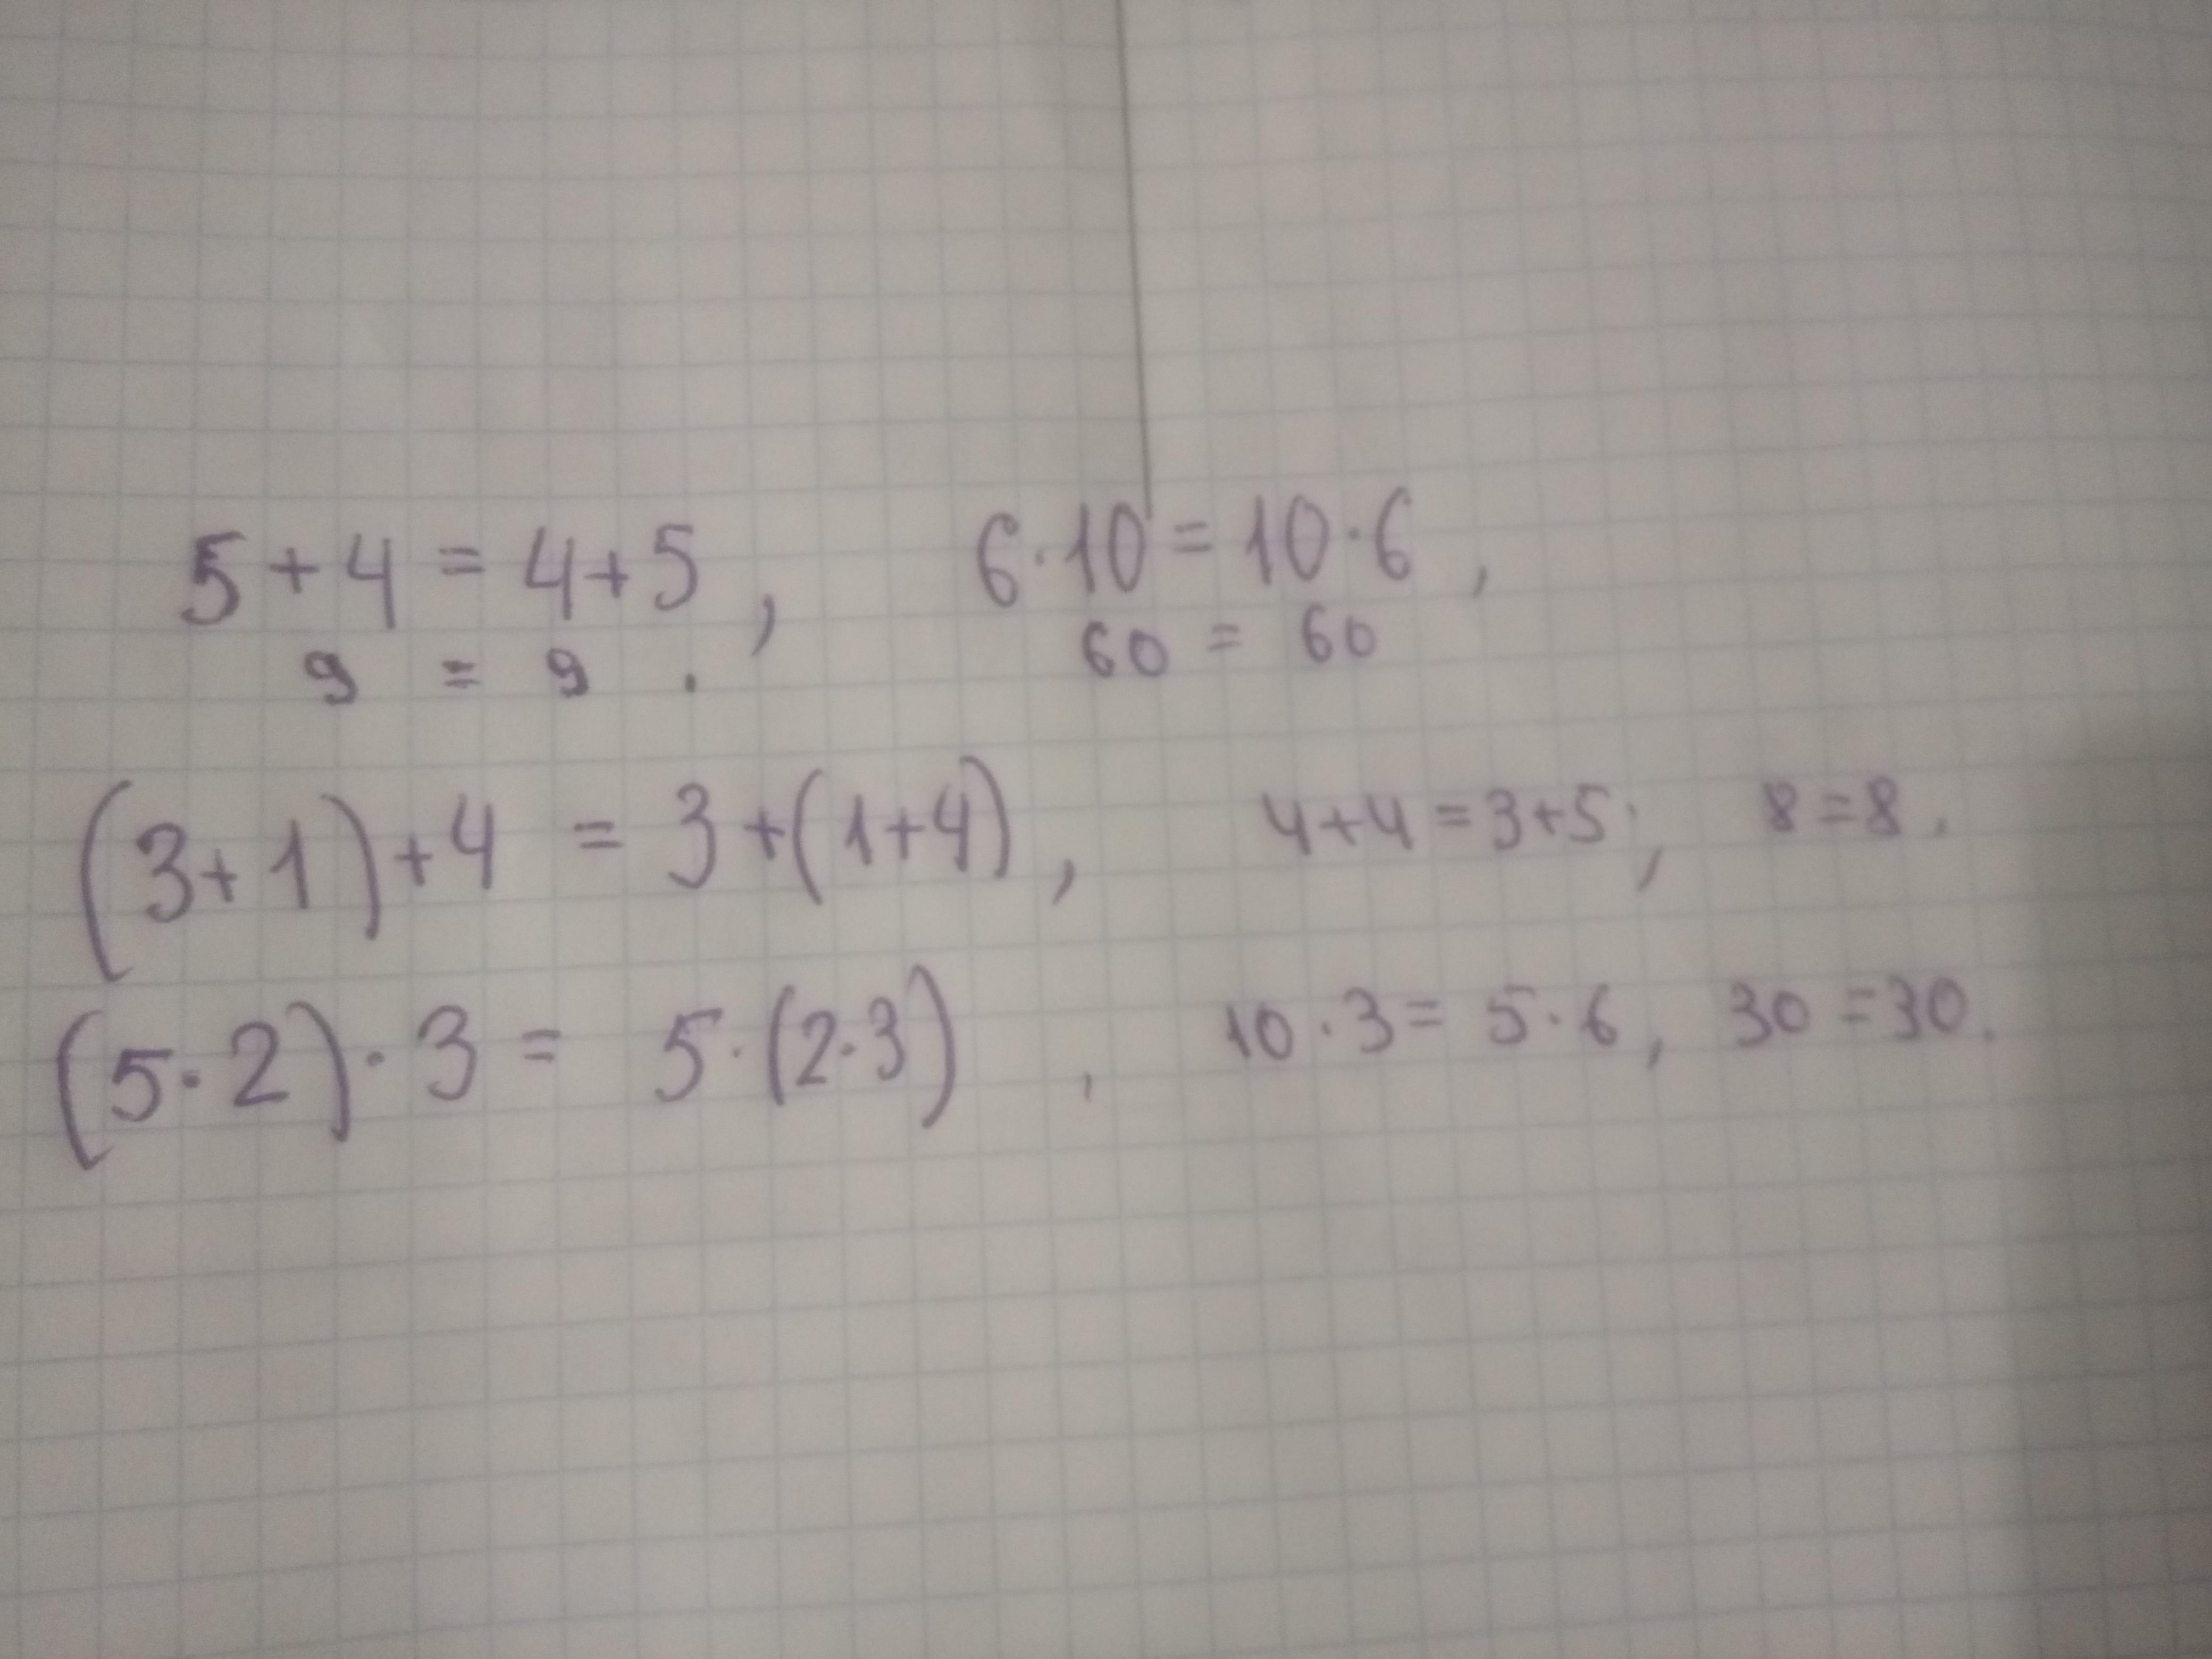 5 + 4 = 4 + 5 , 6 · 10 = 10 · 6 ,
9 = 9 . 60 = 60
(3 + 1) + 4 = 3 + (1 + 4) , 4 + 4 = 3 + 5 , 8 = 8 .
(5 · 2) · 3 = 5 · (2 · 3) , 10 · 3 = 5 · 6 , 30 = 30 .